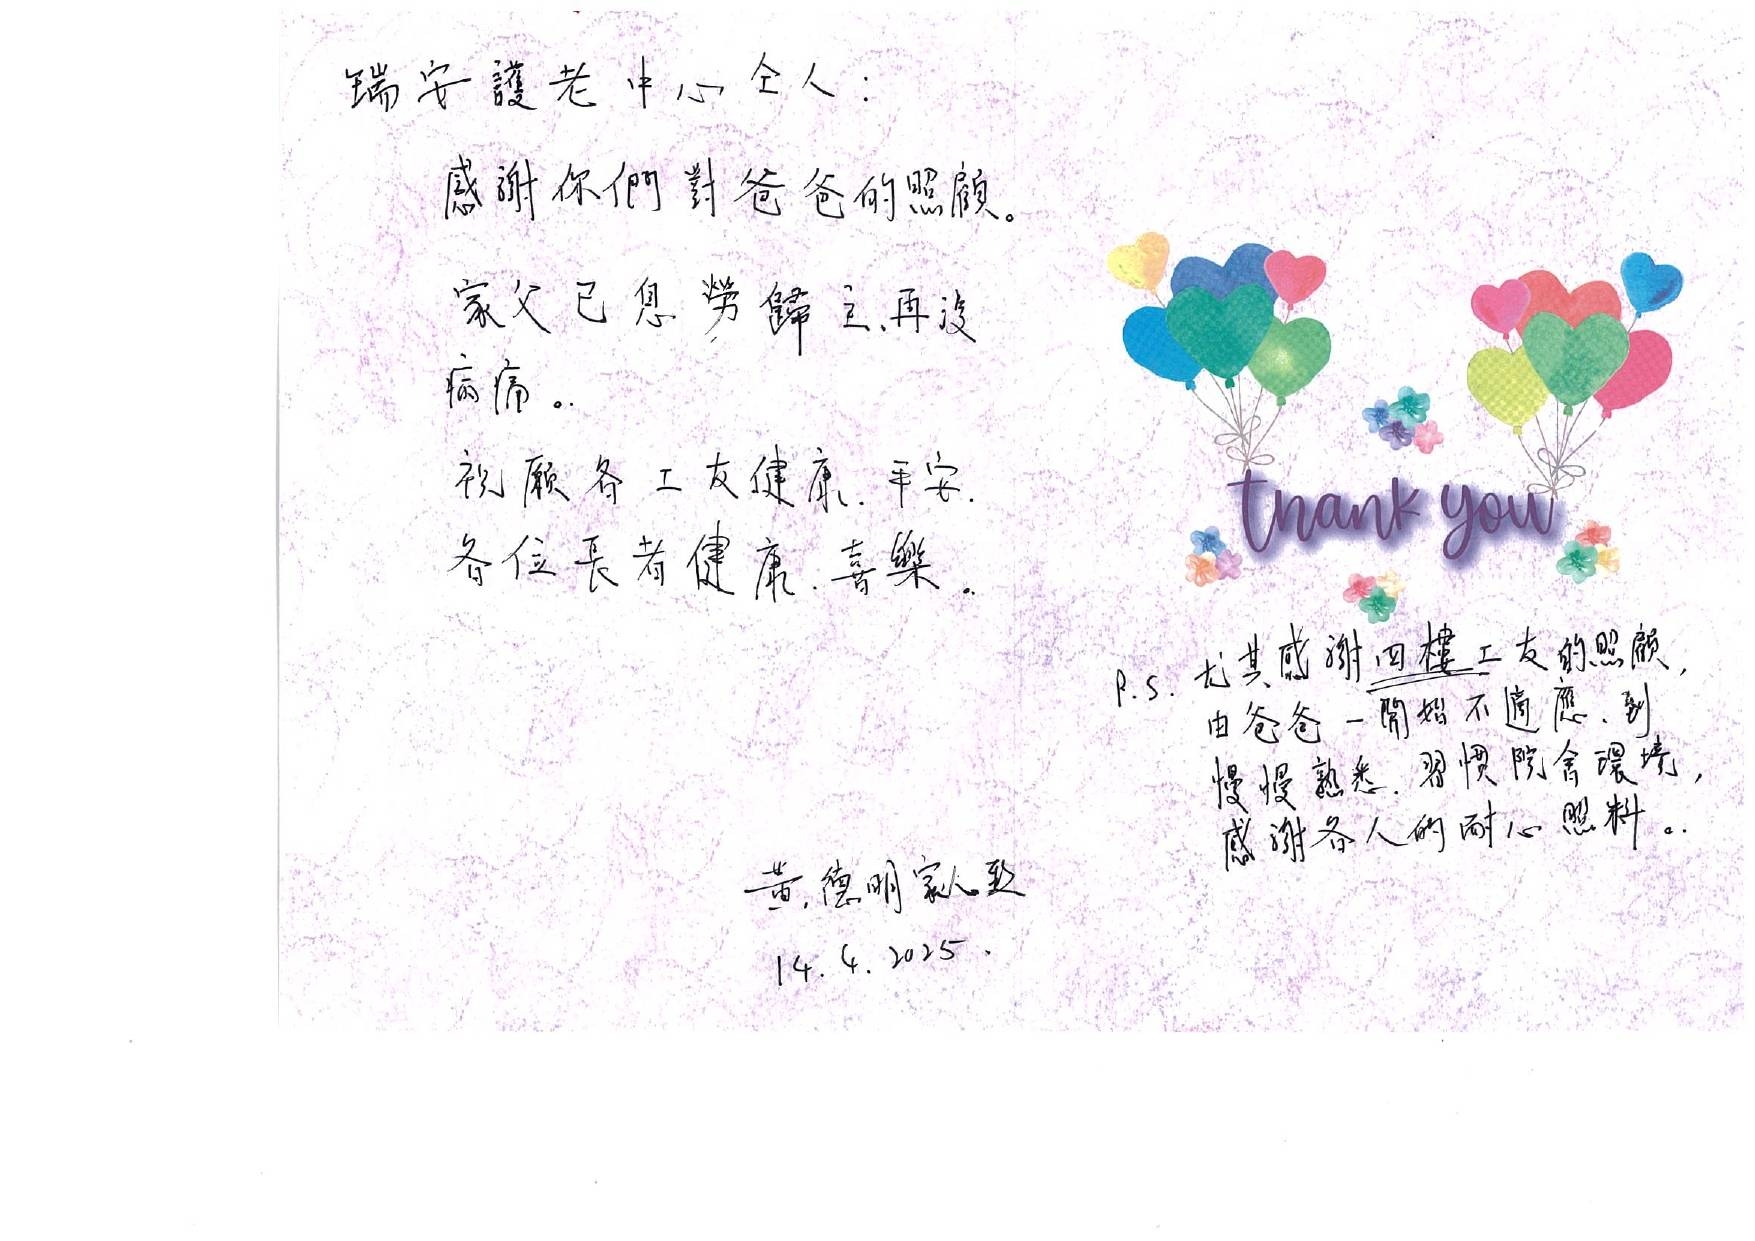 瑞安護老中心仝人：
感謝你們對爸爸的照顧。
家父已息勞歸主、再沒
病痛。
祝願各工友健康、平安、
各位長者健康、喜樂。
黃德明家人致
14.4.2025.
thank you
P.S. 尤其感謝四樓工友的照顧，
由爸爸一開始不適應、到
慢慢熟悉、習慣院舍環境，
感謝各人的耐心照料。